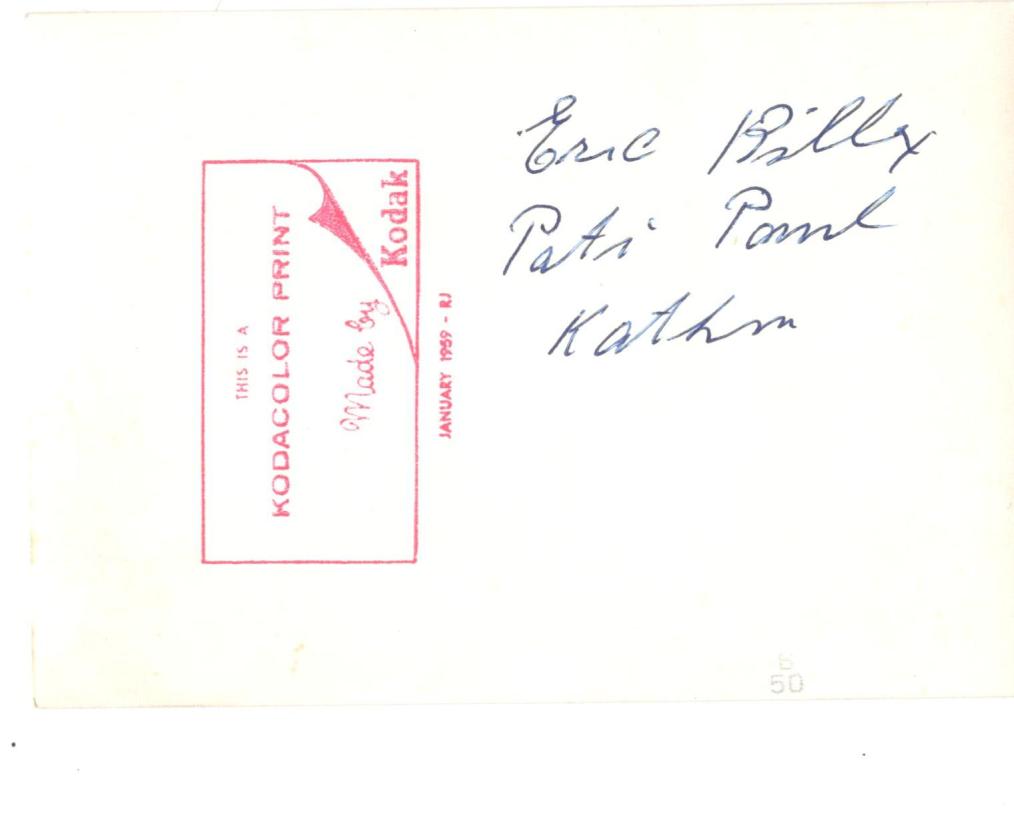 Eric Billy
Pati Paul
Kathm
THIS IS A
KODACOLOR PRINT
Made by
Kodak
JANUARY 1959 - RJ
6
50